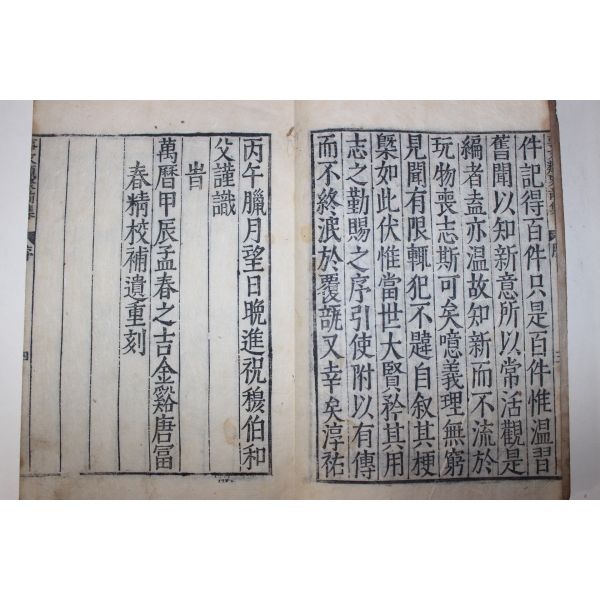 件記得百件只是百件惟温習
舊聞以知新意所以常活觀是
編者盍亦温故知新而不流於
玩物喪志斯可矣噫義理無窮
見聞有限輒犯不韙自叙其梗
槩如此伏惟當世大賢矜其用
志之勤賜之序引使附以有傳
而不終泯於覆瓿又幸矣淳祐
丙午臘月望日晚進祝穆伯和
父謹識
旹
萬曆甲辰孟春之吉金谿唐冨
春精校補遺重刻